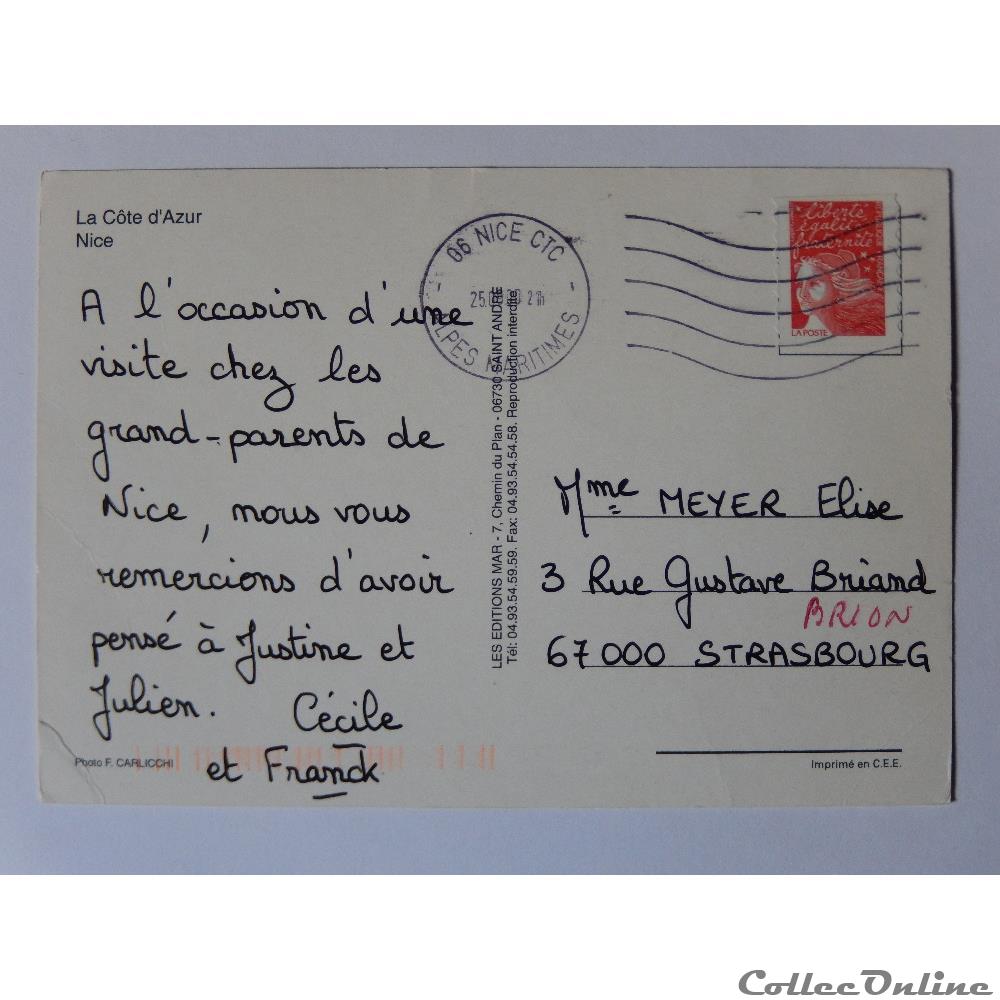 La Côte d'Azur
Nice
A l'occasion d'une
visite chez les
grand-parents de
Nice, nous vous
remercions d'avoir
pensé à Justine et
Julien. Cécile
et Franck
Photo F. CARLICCHI
LES EDITIONS MAR - 7, Chemin du Plan - 06730 SAINT ANDRE
Tél: 04.93.54.59.59. Fax: 04.93.54.54.58. Reproduction interdite.
06 NICE CTC
ALPES MARITIMES
liberté
égalité
fraternité
LA POSTE
Mme MEYER Elise
3 Rue Gustave Briand
BRION
67000 STRASBOURG
Imprimé en C.E.E.
CollecOnline